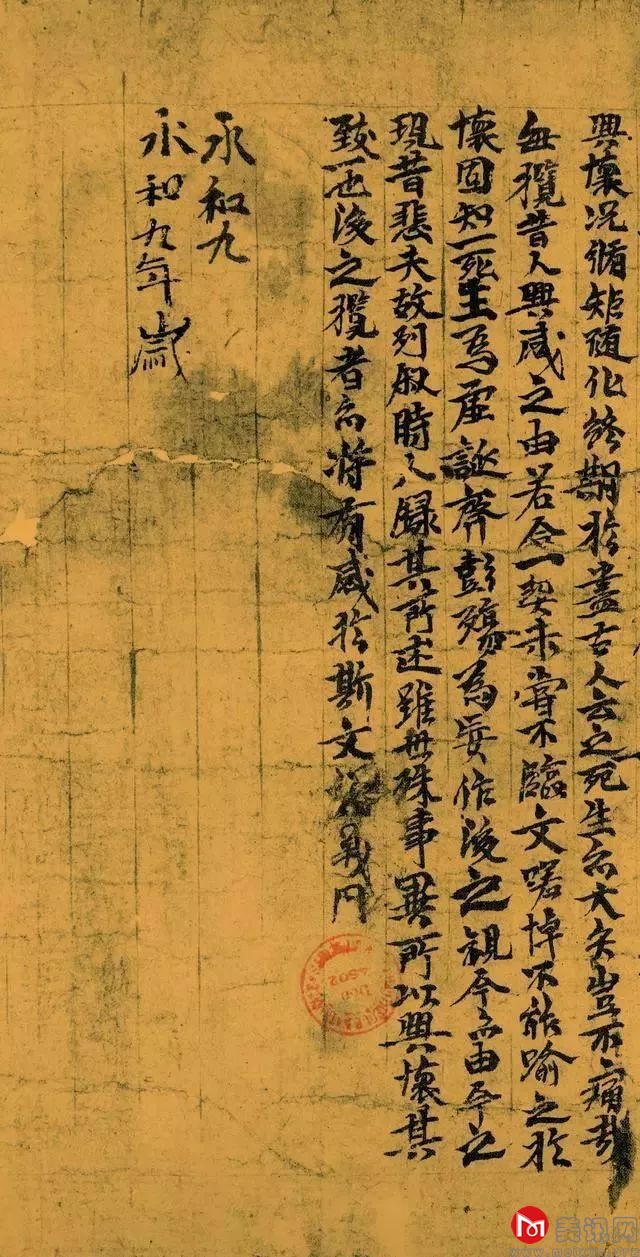 興懷况脩矩随化終期於盡古人云之死生亦大矣豈不痛哉
每攬昔人興感之由若合一契未嘗不臨文嗟悼不能喻之於
懷固知一死生爲虛誕齊彭殤為妄作後之視今亦由今之
視昔悲夫故列叙時人録其所述雖世殊事異所以興懷其
致一也後之攬者亦將有感於斯文
永和九
永和九年歲
美讯网